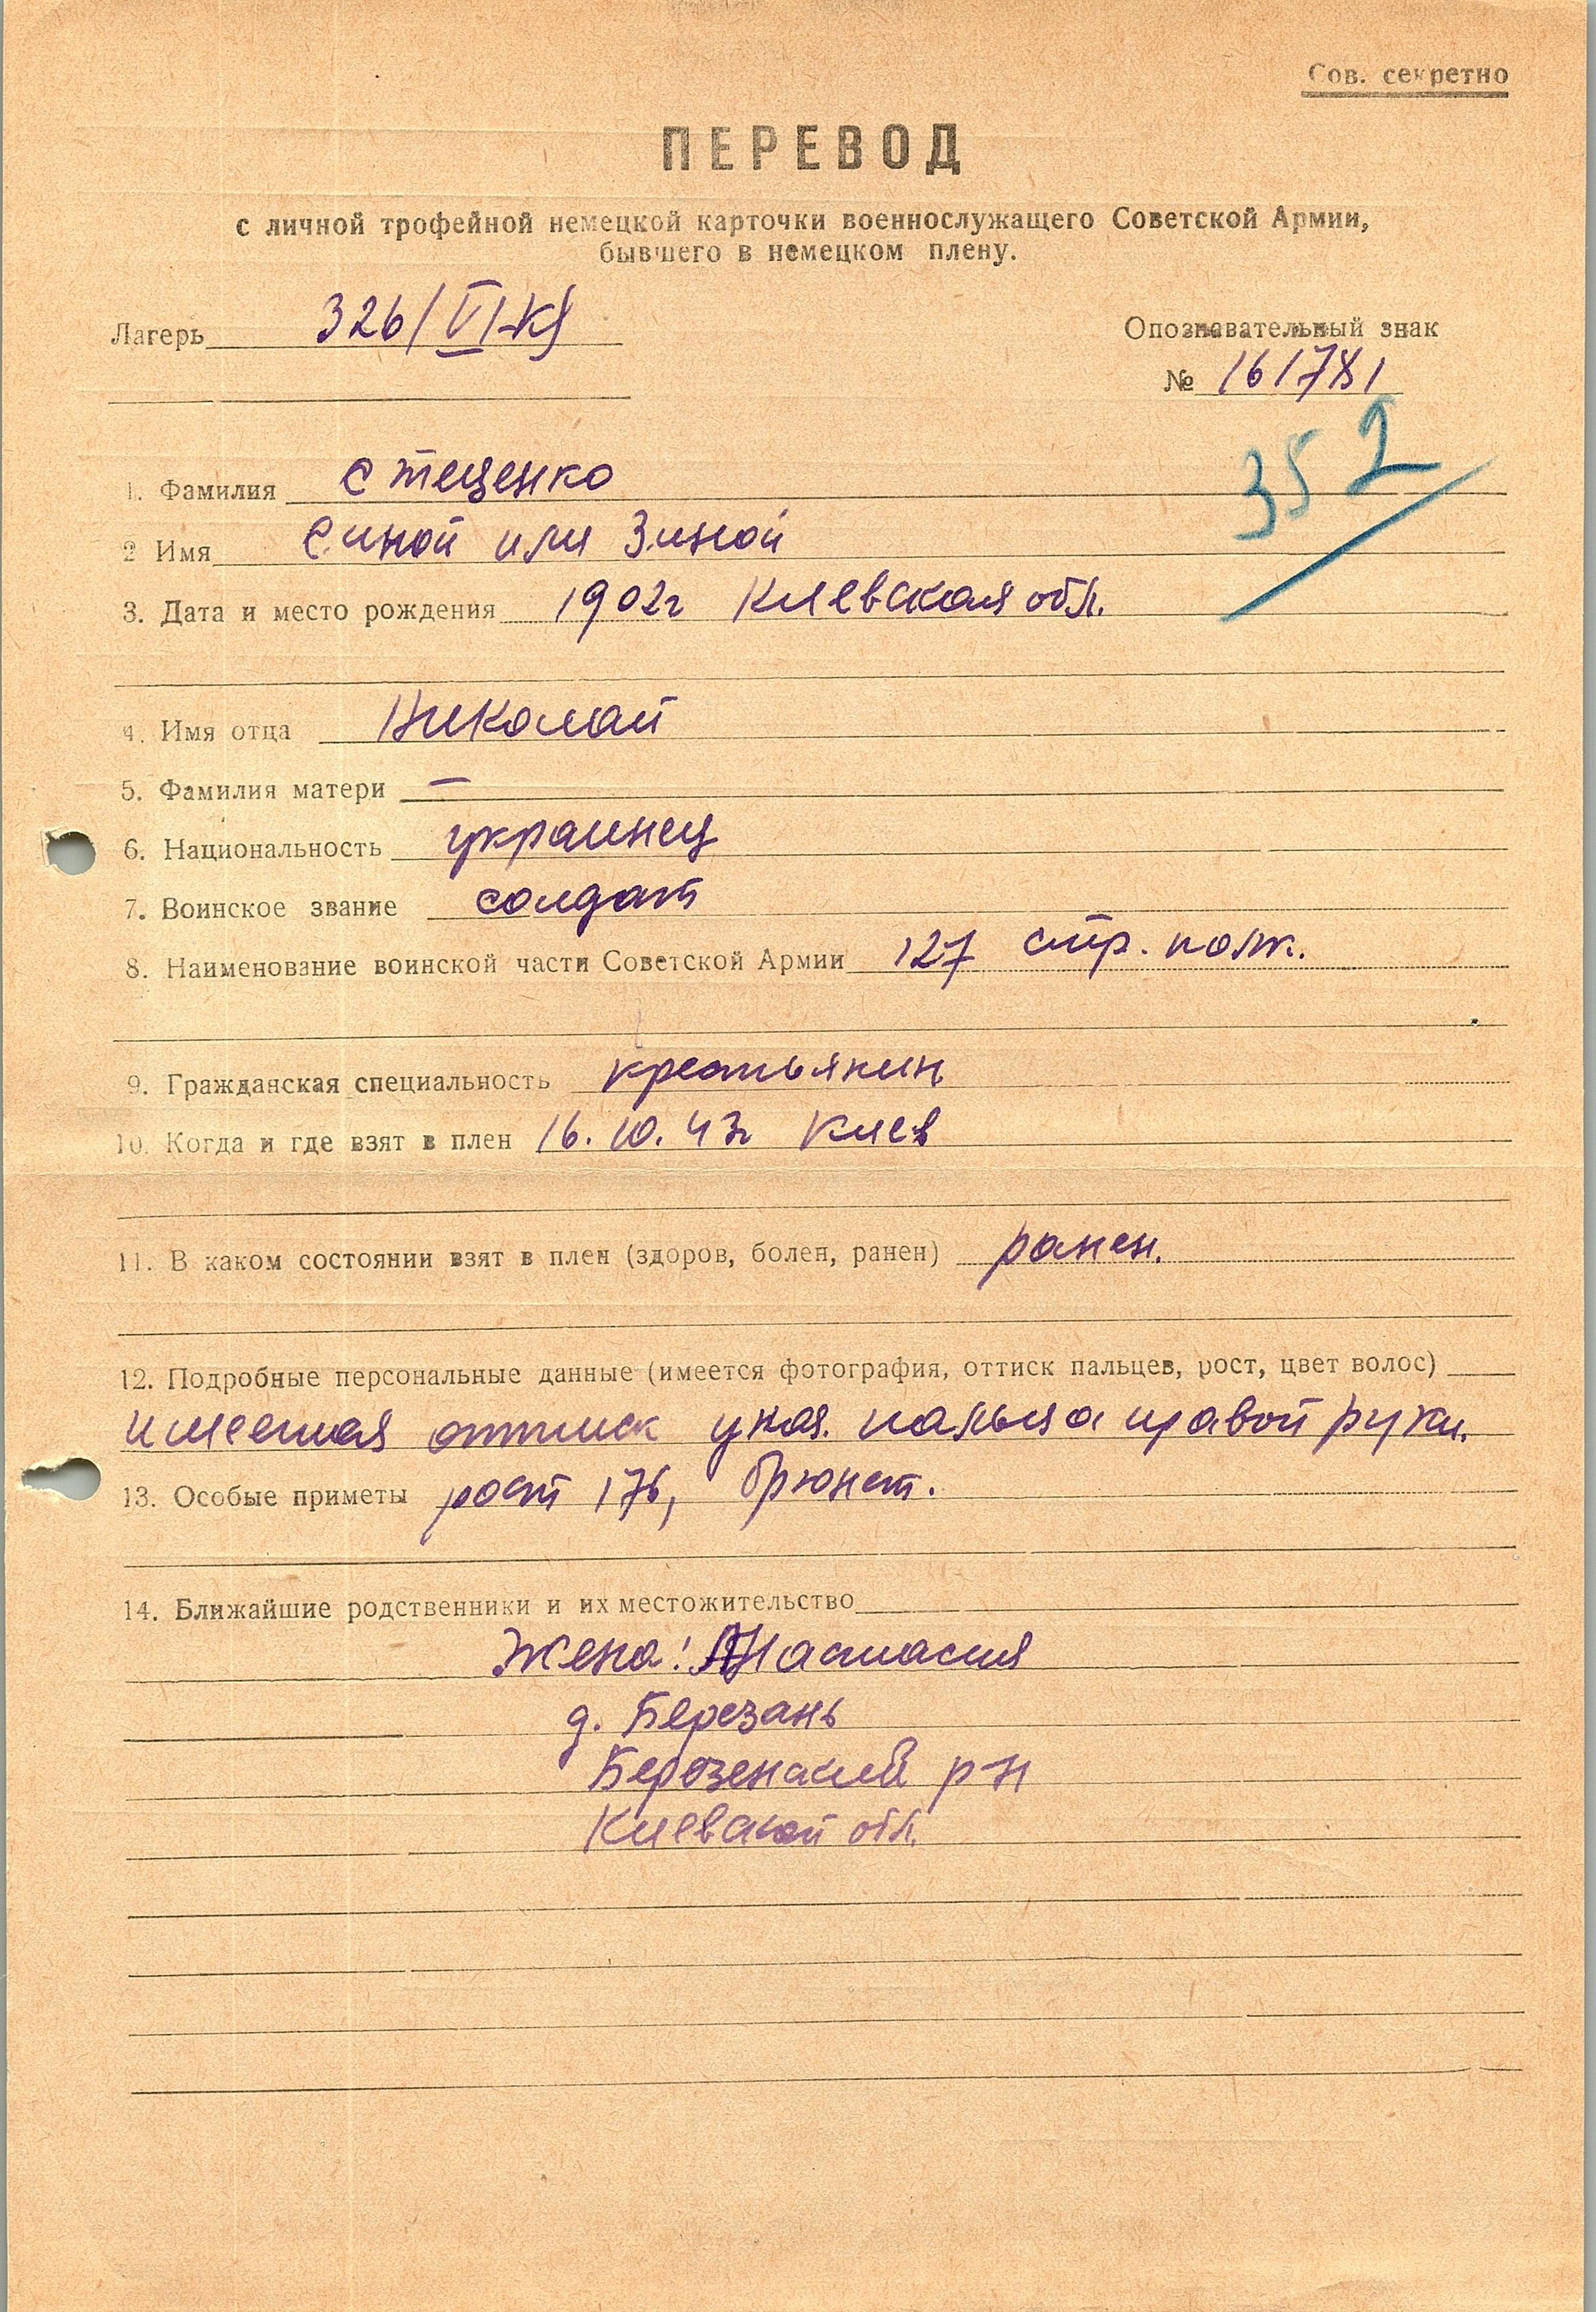 Сов. секретно
ПЕРЕВОД
с личной трофейной немецкой карточки военнослужащего Советской Армии,
бывшего в немецком плену.
Лагерь 326/VI-К
Опознавательный знак
№ 161781
352
1. Фамилия Стеценко
2 Имя Синой или Зиной
3. Дата и место рождения 1902г Киевская обл.
4. Имя отца Николай
5. Фамилия матери —
6. Национальность украинец
7. Воинское звание солдат
8. Наименование воинской части Советской Армии 127 стр. полк.
9. Гражданская специальность крестьянин
10. Когда и где взят в плен 16.10.43г Киев
11. В каком состоянии взят в плен (здоров, болен, ранен) ранен.
12. Подробные персональные данные (имеется фотография, оттиск пальцев, рост, цвет волос)
имеется оттиск указ. пальца правой руки.
13. Особые приметы рост 176, брюнет.
14. Ближайшие родственники и их местожительство
Жена: Анастасия
д. Березань
Березенский р-н
Киевской обл.